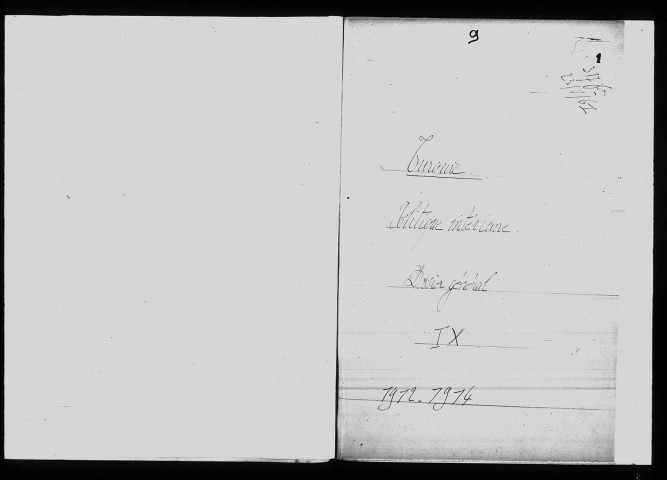 9
1
Turquie.
Politique intérieure.
Dossier général
IX
1912-1914